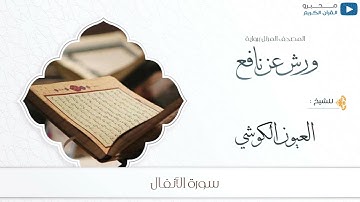 محبرو
القرآن الكريم
المصحف المرتل برواية
ورش عن نافع
للشيخ :
العيون الكوشي
سورة الأنفال